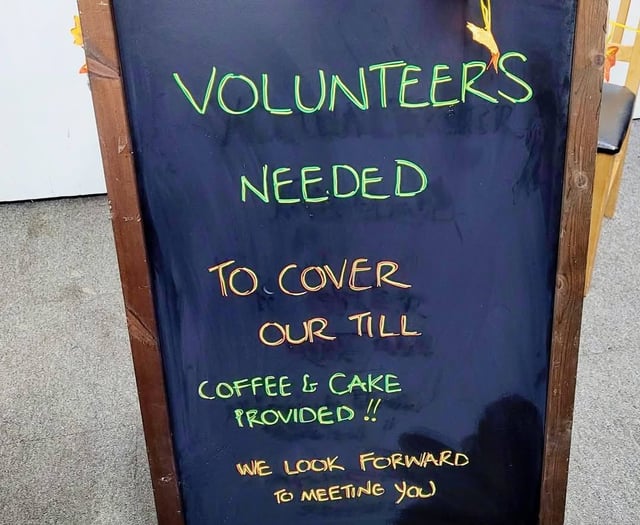 VOLUNTEER'S
NEEDED
TO COVER
OUR TILL
COFFEE & CAKE
PROVIDED !!
WE LOOK FORWARD
TO MEETING YOU